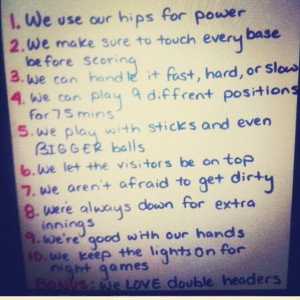 1. We use our hips for power
2. We make sure to touch every base
before scoring
3. We can handle it fast, hard, or slow
4. We can play 9 diffrent positions
for 75 mins
5. We play with sticks and even
BIGGER balls
6. We let the visitors be on top
7. We aren't afraid to get dirty
8. We're always down for extra
innings
9. We're good with our hands
10. We keep the lights on for
night games
BONUS: We LOVE double headers